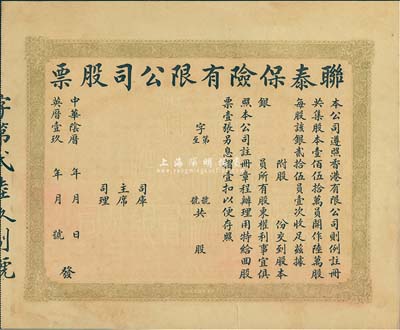 聯泰保險有限公司股票
本公司遵照香港有限公司則例註冊
共集股本壹佰伍拾萬員開作陸萬股
每股該銀貳拾伍員壹次收足茲據
附股 份交到股本
銀 員所有股東權利事宜俱
照本公司註冊章程辦理用特給回股
票壹張另息摺壹扣以便存照
字第 號
至 號共 股
司庫
主席
司理
中華陰曆 年 月 日
英曆壹玖 年 月 號 發
字第貳陸玖捌號
上海泓明拍賣